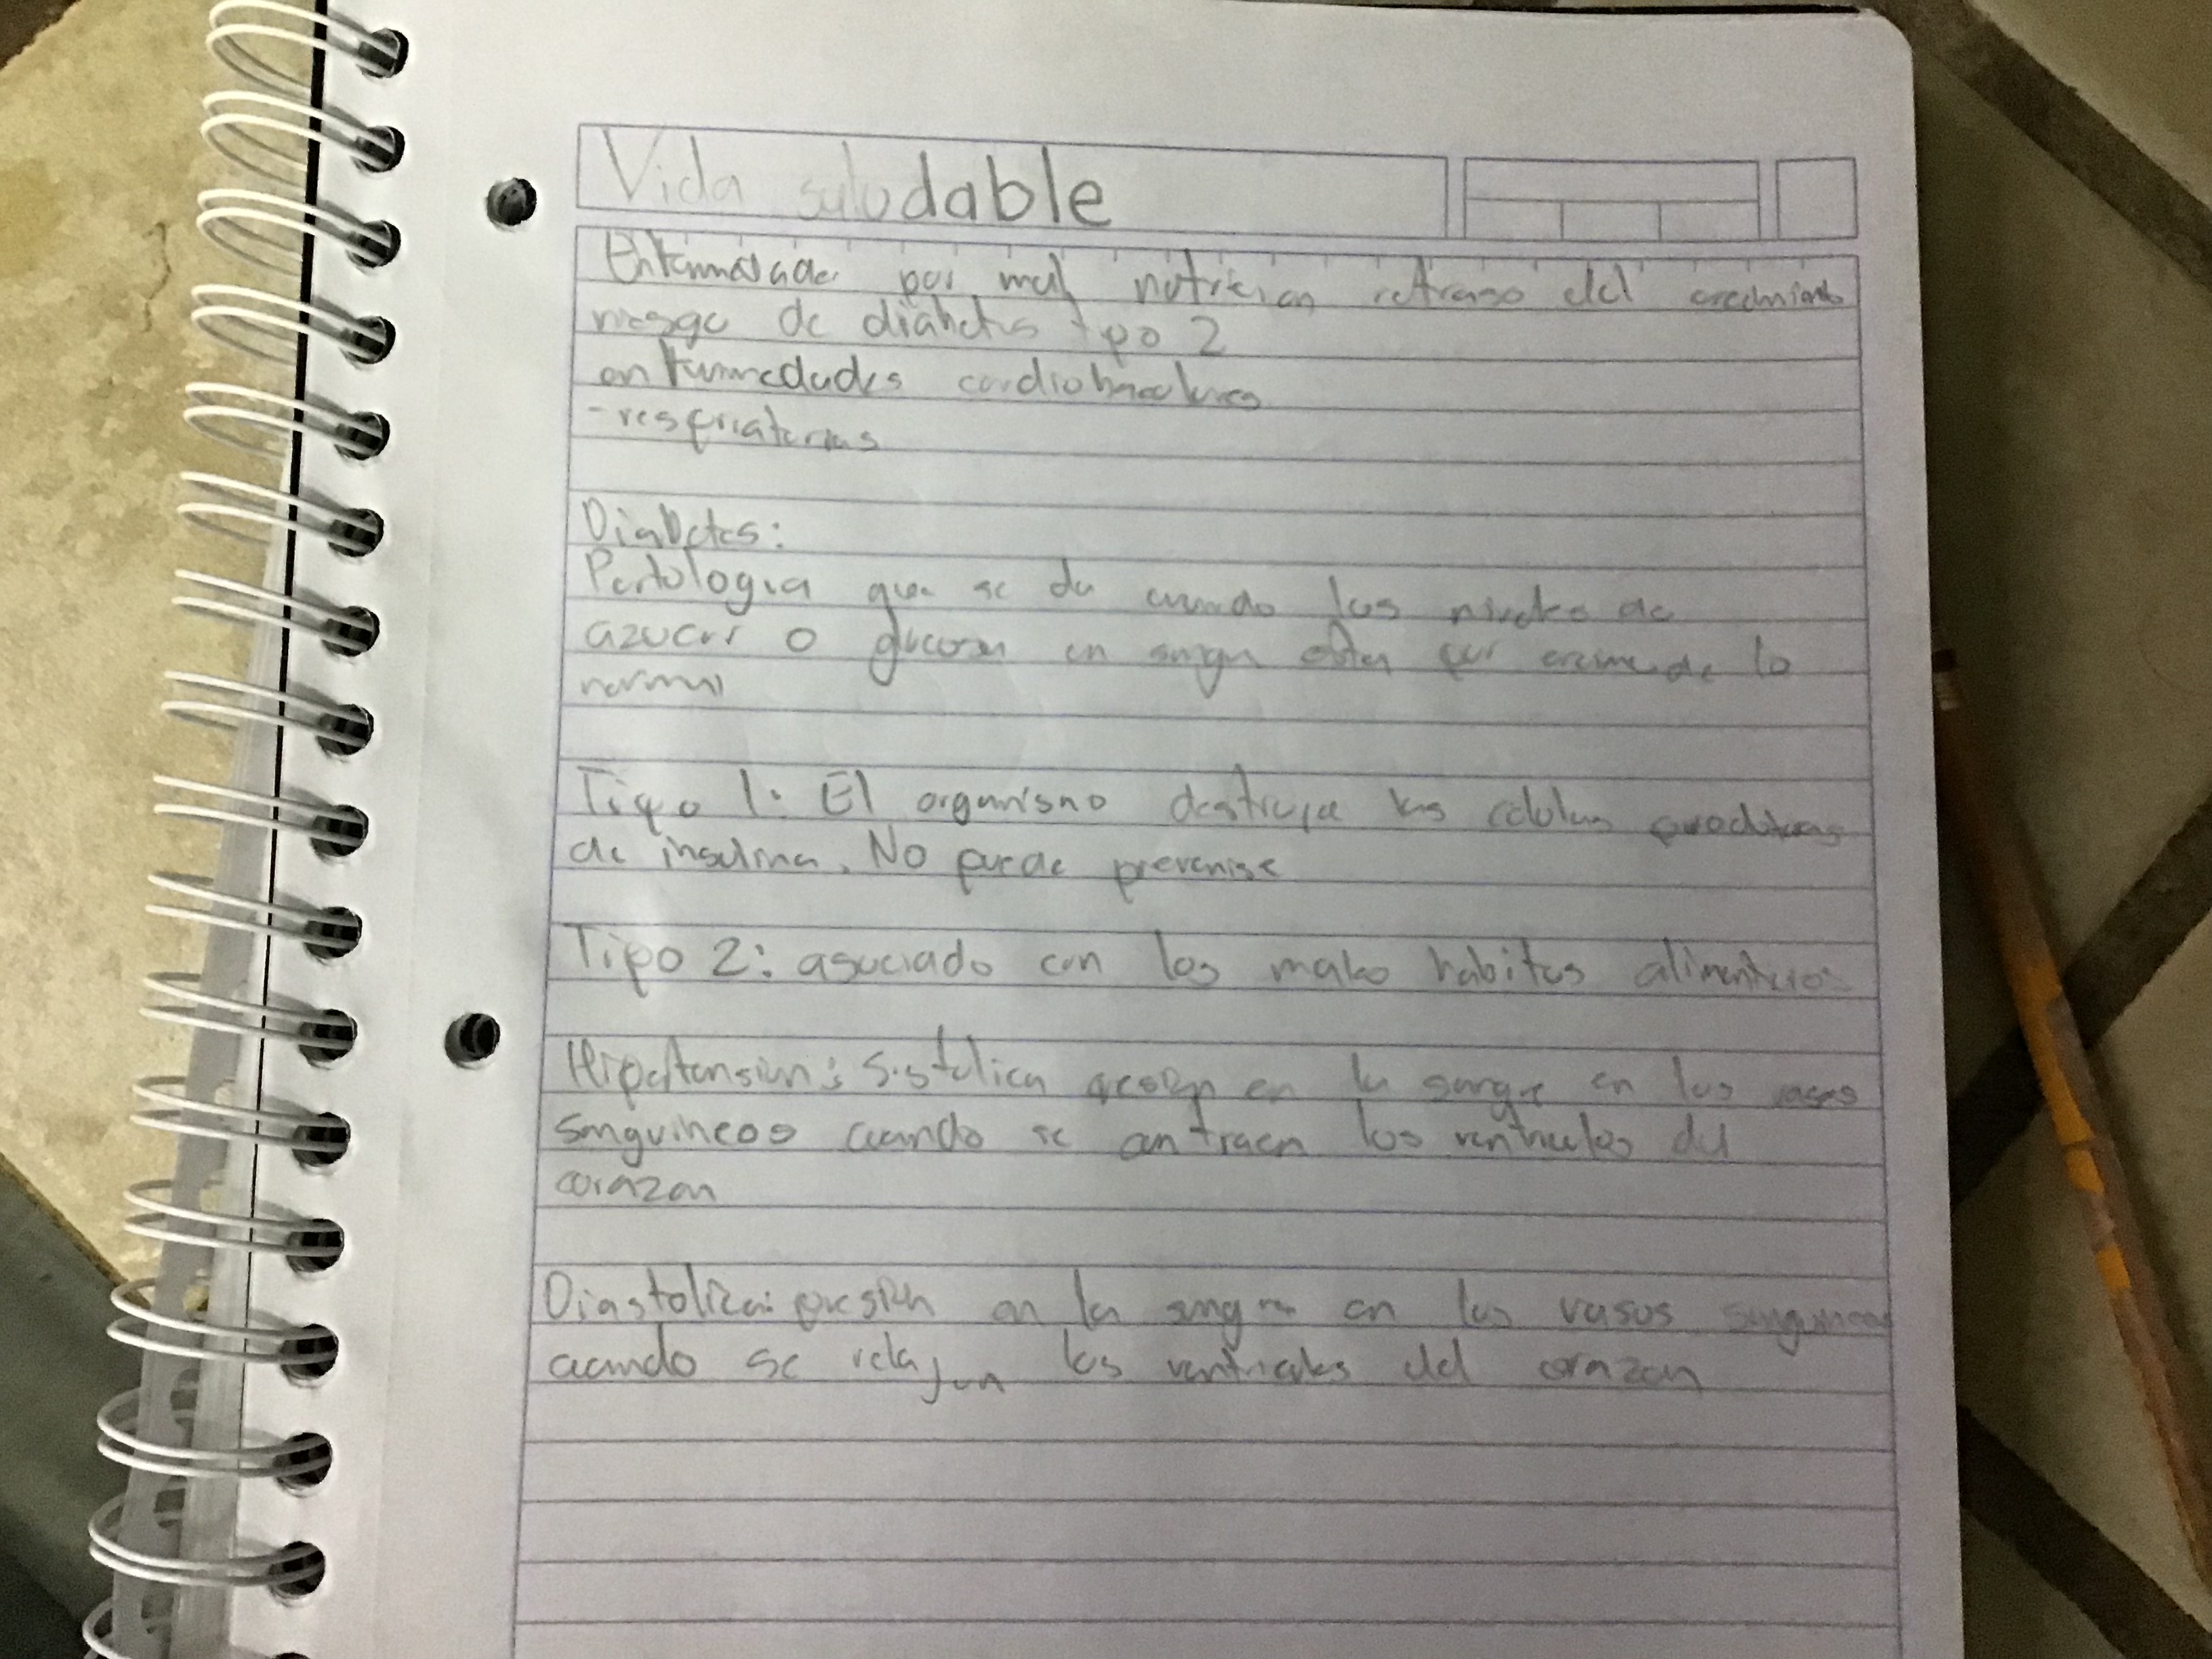 Vida saludable
por mal nutricion retraso del crecimiento
riesgo de diabetes tipo 2
enfermedades
-respriatorias
Diabetes:
Partologia que se da cuando los niveles de
azucar o glucosa en sangre estan por encima de lo
normal
Tipo 1: El organismo destruye las celulas productoras
de insulina. No puede prevenise
Tipo 2: asociado con los malo habitos alimenticios
Hipertension: Sistolica presion en la sangre en los vasos
sanguineos cuando se contraen los ventriculos del
corazon
Diastolica: presion en la sangre en los vasos sanguineos
cuando se relajan los ventriculos del corazon